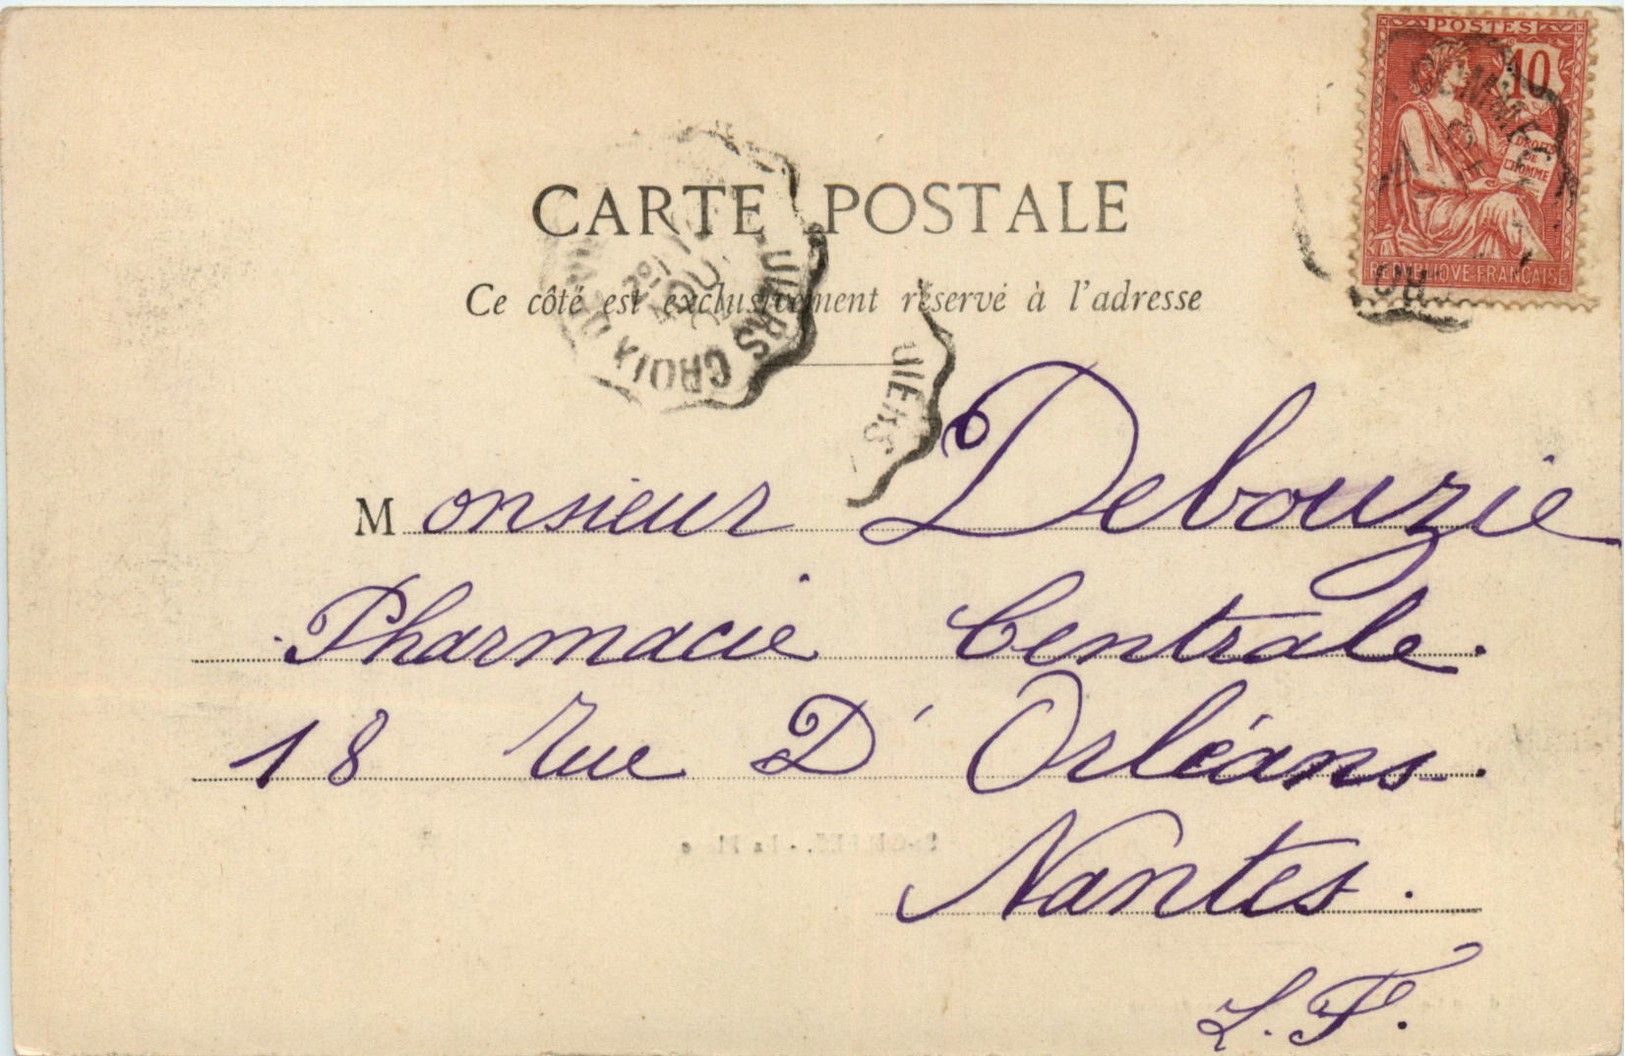 POSTES
10
DROITS
DE
L'HOMME
REPUBLIQUE FRANÇAISE
CARTE POSTALE
Ce côté est exclusivement réservé à l'adresse
CROIX D
Monsieur Debouzie
Pharmacie Centrale.
18 rue D'Orléans.
Nantes.
L. F.